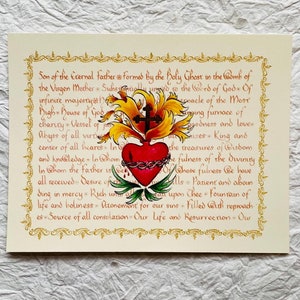 Son of the Eternal Father + formed by the Holy Ghost in the Womb of
the Virgin Mother + Substantially united to the Word of God + Of
infinite majesty + of the Most
High + House of G ing furnace of
charity + Vessel of dness and love +
Abyss of all vir + King and
center of all hearts + In treasures of wisdom
and knowledge + In Who fullness of the Divinity
In Whom the Father is whose fullness we have
all received + Desire of ills + Patient and abound
ing in mercy + Rich u upon Thee + Fountain of
life and holiness + Atonement for our sins + Filled with reproach
es + Source of all consolation + Our Life and Resurrection + Our